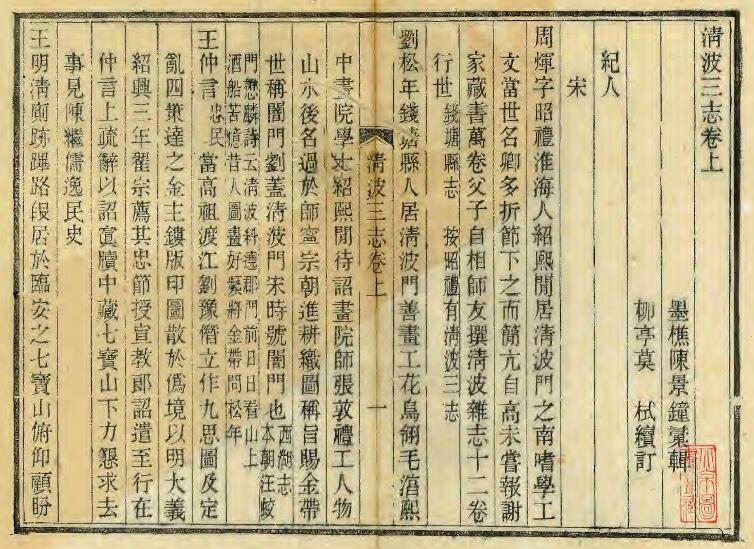 清波三志卷上
墨樵陳景鐘彙輯
柳亭莫 栻續訂
紀人
宋
周煇字昭禮淮海人紹熙間居清波門之南嗜學工
文當世名卿多折節下之而簡亢自高未嘗報謝
家藏書萬卷父子自相師友撰清波雜志十二卷
行世 錢塘縣志 按昭禮有清波三志
劉松年錢塘縣人居清波門善畫工花鳥翎毛淳熙
清波三志卷上 一
中畫院學士紹熙間待詔畫院師張敦禮工人物
山水後名過於師寧宗朝進耕織圖稱旨賜金帶
世稱闇門劉蓋清波門宋時號闇門也 西湖志
本朝汪蛟
門懋麟詩云清波斜遶郡門前日日看山上
酒船苦憶昔人圖畫好頻將金帶問松年
王仲言 忠民 當高祖渡江劉豫僭立作九思圖及定
亂四策達之金主鏤版印圖散於僞境以明大義
紹興三年翟宗薦其忠節授宣教郎詔遣至行在
仲言上疏辭以詔寘牘中藏七寶山下力懇求去
事見陳繼儒逸民史
王明清厠跡蹕路段居於臨安之七寶山俯仰顧盼